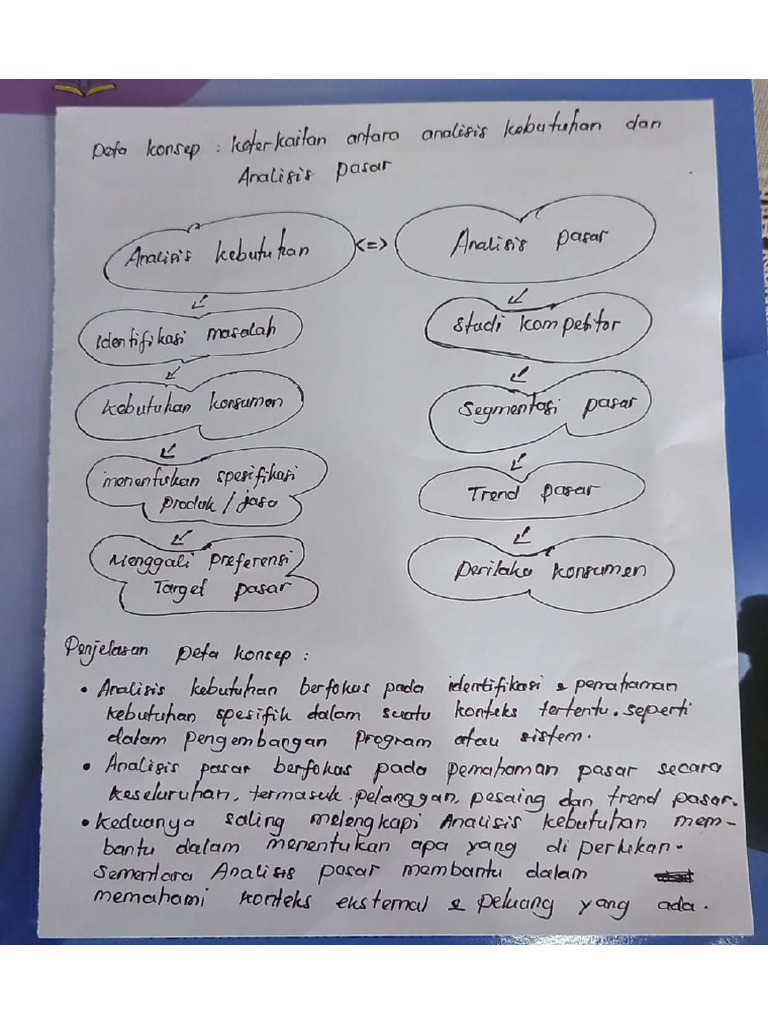 Peta konsep : keterkaitan antara analisis kebutuhan dan
Analisis pasar
Analisis kebutuhan <=> Analisis pasar
Identifikasi masalah
Studi kompetitor
Kebutuhan konsumen
Segmentasi pasar
menentukan spesifikasi
produk / jasa
Trend pasar
Menggali preferensi
Target pasar
Perilaku konsumen
Penjelasan peta konsep :
• Analisis kebutuhan berfokus pada identifikasi & pemahaman
kebutuhan spesifik dalam suatu konteks tertentu. seperti
dalam pengembangan program atau sistem.
• Analisis pasar berfokus pada pemahaman pasar secara
keseluruhan, termasuk pelanggan, pesaing dan trend pasar.
• Keduanya saling melengkapi Analisis kebutuhan mem-
bantu dalam menentukan apa yang di perlukan.
sementara Analisis pasar membantu dalam
memahami konteks eksternal & peluang yang ada.